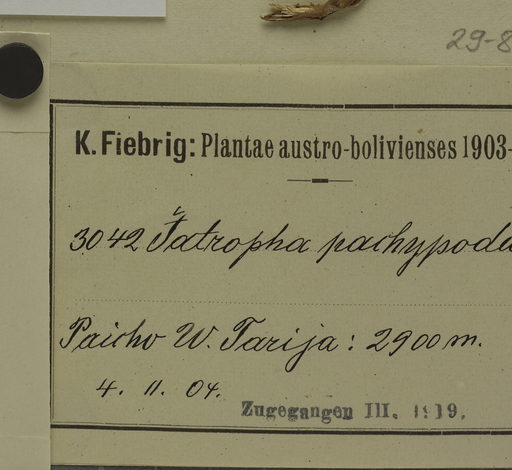 29-8
K. Fiebrig: Plantae austro-bolivienses 1903-
3042 Jatropha pachypoda
Paicho W. Tarija: 2900 m.
4. 11. 04.
Zugegangen III. 1919.